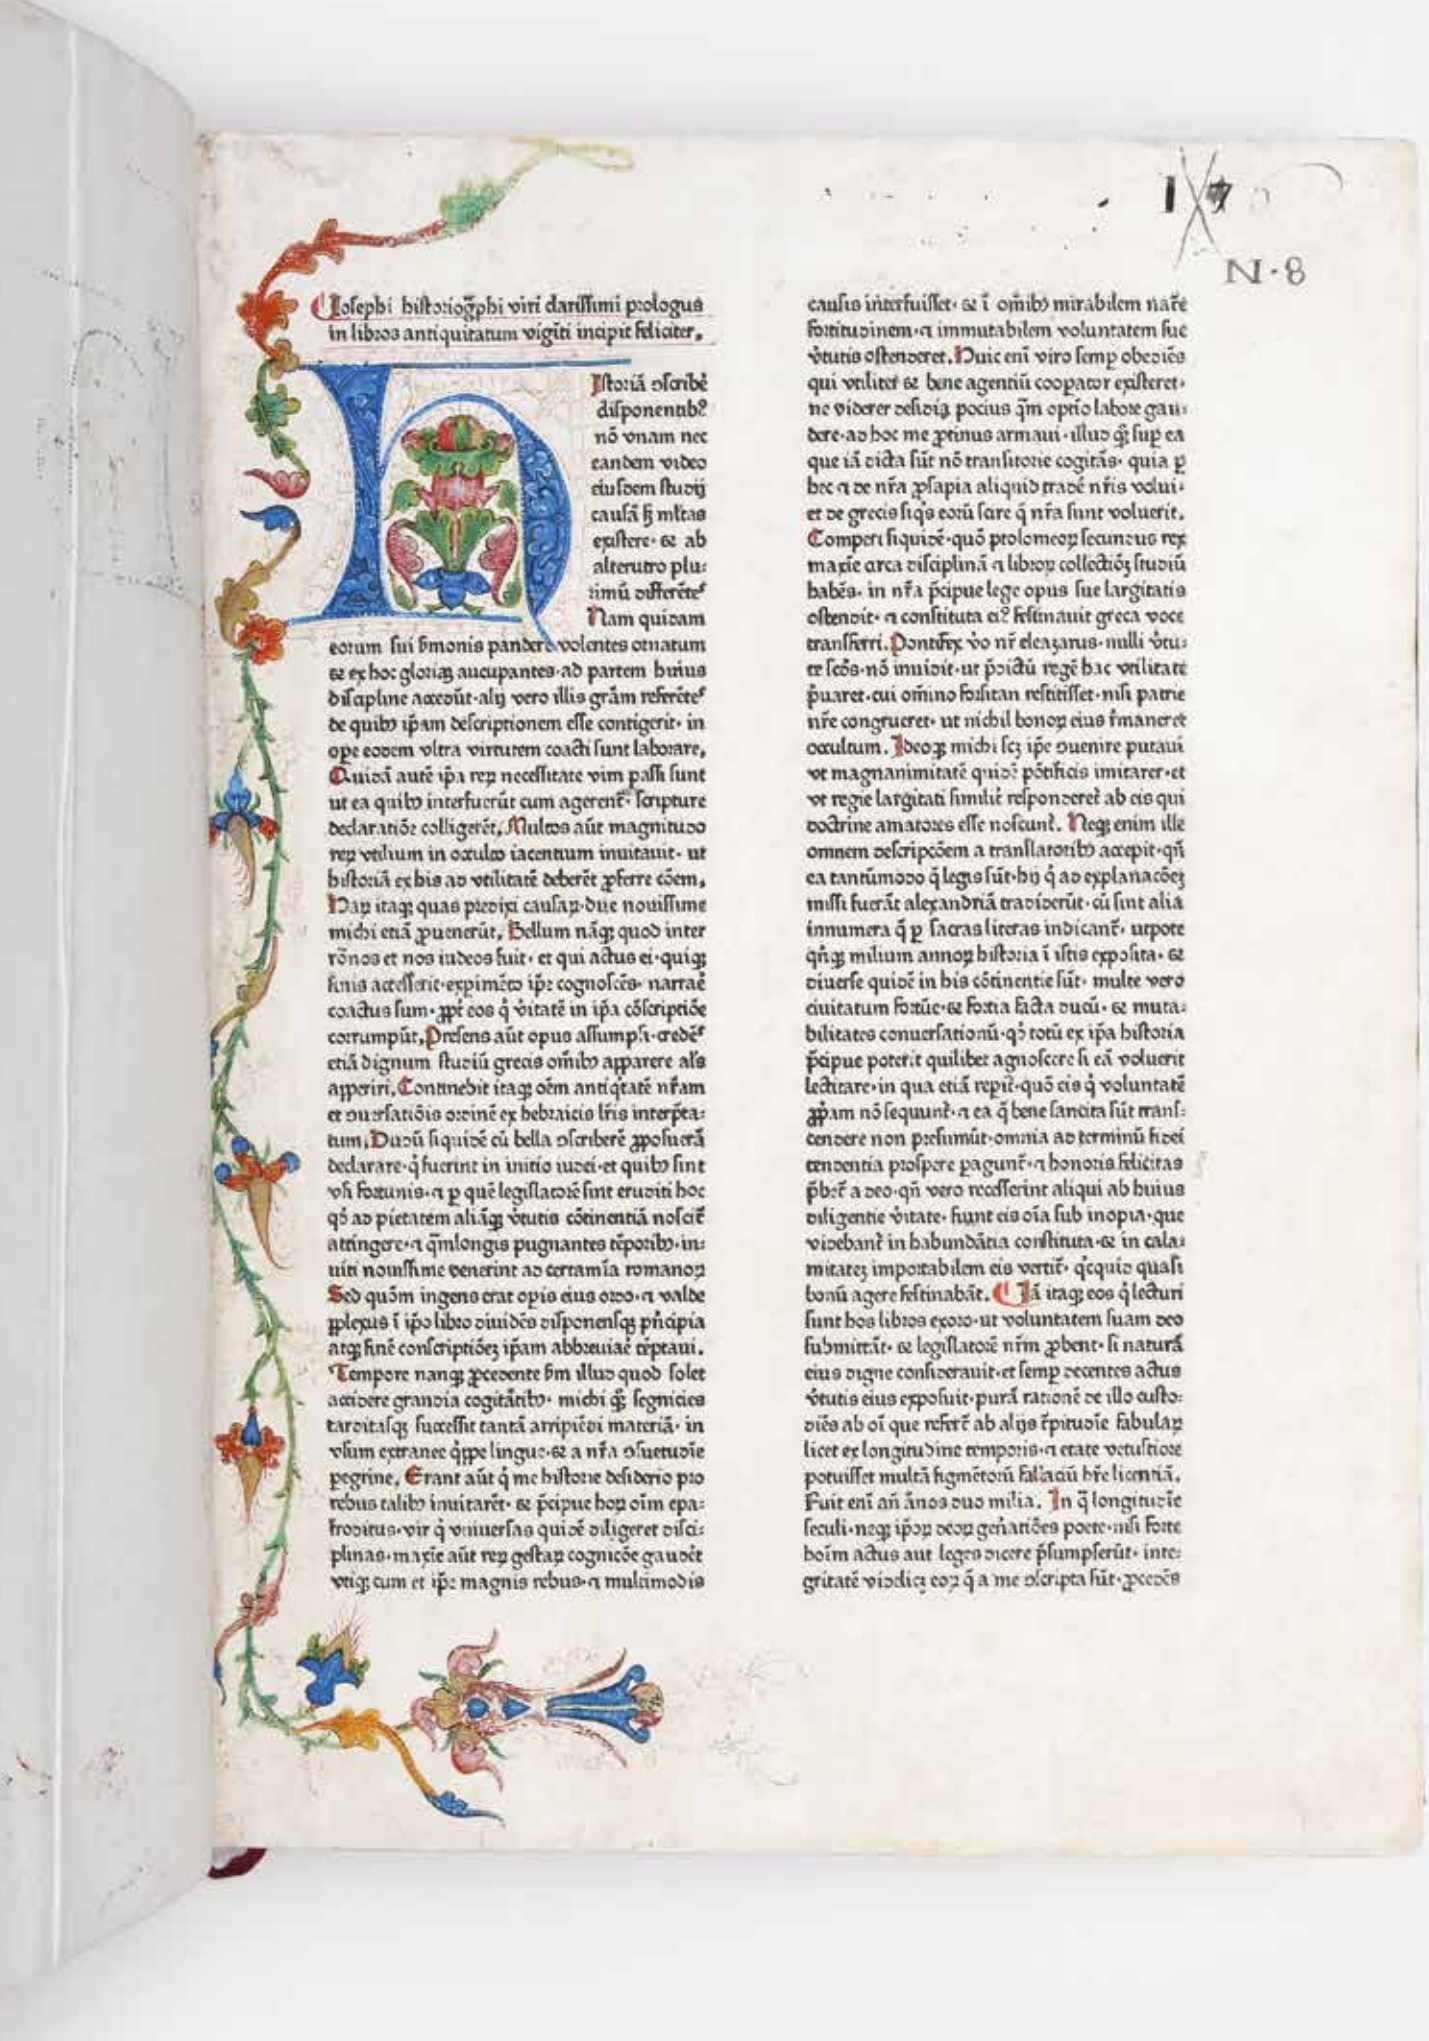 I7
N·8
Iosephi historiog̃phi viri clarissimi prologus
in libros antiquitatum vigĩti incipit feliciter.
H
Istoriã ↄscribẽ
disponentibꝰ
nõ vnam nec
eandem video
eiusdem studij
causã ß ml̃tas
existere· & ab
alterutro plu:
rimũ differẽteˢ
Nam quidam
eorum sui ẜmonis pandere volentes ornatum
& ex hoc gloriaꝫ aucupantes·ad partem huius
discipline accedũt·alij vero illis grãm referẽteˢ
de quibꝫ ip̃am descriptionem esse contigerit· in
oꝑe eodem vltra virtutem coacti sunt laborare.
Quidã autẽ ip̃a reꝝ necessitate vim passi sunt
ut ea quibꝫ interfuerũt cum agerent̃· scripture
declaratiõe colligerẽt. Multos aũt magnitudo
reꝝ vtilium in occulto iacentium inuitauit· ut
historiã ex his ad vtilitatẽ deberẽt ꝓferre cõem.
Haꝝ itaqꝫ quas predixi causaꝝ·due nouissime
michi etiã ꝓuenerũt. Bellum nãqꝫ quod inter
rõnos et nos iudeos fuit· et qui actus ei·quiqꝫ
finis accesserit·expimẽto ip̃e cognoscẽs· narrarẽ
coactus sum·ꝓpt̃ eos q̇ v̇itatẽ in ip̃a cõscriptiõe
corrumpũt. Presens aũt opus assumpsi·credẽˢ
etiã dignum studiũ grecis om̃ibꝫ apparere al̃s
apperiri. Continebit itaqꝫ oẽm antiq̇tatẽ nr̃am
et ↄuersatiõis ordinẽ ex hebraicis lr̃is interp̃ta:
tum. Dudũ siquidẽ cũ bella ↄscriberẽ ꝓposuerã
declarare·q̇ fuerint in initio iudei·et quibꝫ sint
vsi fortunis·⁊ ꝑ quẽ legislatorẽ sint eruditi hoc
qd̓ ad pietatem aliãqꝫ v̇tutis cõtinentiã noscit̃
attingere·⁊ q̃mlongis pugnantes tẽporibꝫ·in:
uiti nouissime venerint ad certamĩa romanoꝝ
Sed quõm ingens erat opis eius ordo·⁊ valde
ꝓplexus ĩ ip̃o libro diuidẽs disponensqꝫ pñcipia
atqꝫ finẽ conscriptiõeꝫ ip̃am abbreuiaẽ tẽptaui.
Tempore nanqꝫ ꝓcedente ẜm illud quod solet
accidere grandia cogitãtibꝫ· michi q̃ꝫ segnicies
tarditasqꝫ successit tantã arripiẽdi materiã· in
vsum extranee q̇ppe lingue·& a nr̃a ↄsuetudĩe
ꝑegrine. Erant aũt q̇ me historie desiderio pro
rebus talibꝫ inuitarẽt· & p̃cipue hoꝝ oĩm epa:
froditus·vir q̇ vniuersas quidẽ diligeret disci:
plinas·maxĩe aũt reꝝ gestaꝝ cognicõe gaudẽt
vtiqꝫ cum et ip̃e magnis rebus·⁊ multimodis
causis interfuisset· & ĩ om̃ibꝫ mirabilem nat̃e
fortitudinem·⁊ immutabilem voluntatem sue
v̇tutis ostenderet. Huic enĩ viro semꝑ obediẽs
qui vtilit̃ & bene agentiũ cooꝑator existeret·
ne viderer desidiꝫ pocius q̃m optĩo labore gau:
dere·ad hoc me ꝓtinus armaui·illud q̃ꝫ suꝑ ea
que iã dicta sũt nõ transitorie cogitãs· quia ꝑ
hec ⁊ de nr̃a ꝓsapia aliquid tradẽ nr̃is volui·
et de grecis siq̇s eorũ scire q̃ nr̃a sunt voluerit.
Comperi siquidẽ·quõ ptolomeoꝝ secundus rex
maxĩe circa disciplinã ⁊ libroꝝ collectiõꝫ studiũ
habẽs· in nr̃a p̃cipue lege opus sue largitatis
ostendit· ⁊ constituta eiꝰ festinauit greca voce
transferri. Pontifex v̇o nr̃ eleazarus·nulli v̇tu:
te scd̃s·nõ inuidit·ut p̃dictũ regẽ hac vtilitate
p̃uaret·cui om̃ino forsitan restitisset·nisi patrie
nr̃e congrueret· ut nichil bonoꝝ eius r̃maneret
occultum. Ideoqꝫ michi scꝫ ip̃e ↄuenire putaui
vt magnanimitatẽ quidẽ põtificis imitarer·et
vt regie largitati similit̃ responderet ab eis qui
doctrine amatores esse noscunt̃. Neqꝫ enim ille
omnem descripcõem a translatoribꝫ accepit·qñ
ea tantũmodo q̃ legis sũt·hij q̇ ad explanacõeꝫ
missi fuerãt alexandriã tradiderũt·cũ sint alia
innumera q̃ ꝑ sacras literas indicant̃· utpote
qñqꝫ milium annoꝝ historia ĩ istis exposita· &
diuerse quidẽ in his cõtinentie sũt· multe vero
ciuitatum fortũe·& fortia facta ducũ· & muta:
bilitates conuersationũ·qd̓ totũ ex ip̃a historia
p̃cipue poterit quilibet agnoscere si eã voluerit
lectitare·in qua etiã repit̃·quõ eis q̇ voluntatẽ
ꝓpam nõ sequunt̃·⁊ ea q̃ bene sancita sũt trans:
cendere non presumũt·omnia ad terminũ fidei
tendentia prospere ꝑagunt̃·⁊ honoris felicitas
p̃bet̃ a deo·qñ vero recesserint aliqui ab huius
diligentie v̇itate· fiunt eis oĩa sub inopia·que
videbant̃ in habundãtia constituta·& in cala:
mitateꝫ importabilem eis vertit̃· q̇cquid quasi
bonũ agere festinabãt. Iã itaqꝫ eos q̇ lecturi
sunt hos libros exoro·ut voluntatem suam deo
submittãt· & legislatorẽ nr̃m ꝓbent· si naturã
eius digne considerauit·et semꝑ decentes actus
v̇tutis eius exposuit·purã rationẽ de illo custo:
diẽs ab oĩ que refert̃ ab alijs t̃pitudĩe fabulaꝝ
licet ex longitudine temporis·⁊ etate vetustiore
potuisset multã figmẽtorũ fallaciũ hr̃e licentiã.
Fuit enĩ añ ãnos duo milia. In q̃ longitudĩe
seculi·neqꝫ ip̃oꝝ deoꝝ geñatiões poete·nisi forte
hoĩm actus aut leges dicere p̃sumpserũt· inte:
gritatẽ viodicꝫ eoꝝ q̃ a me ↄscripta sũt·ꝓcedẽs